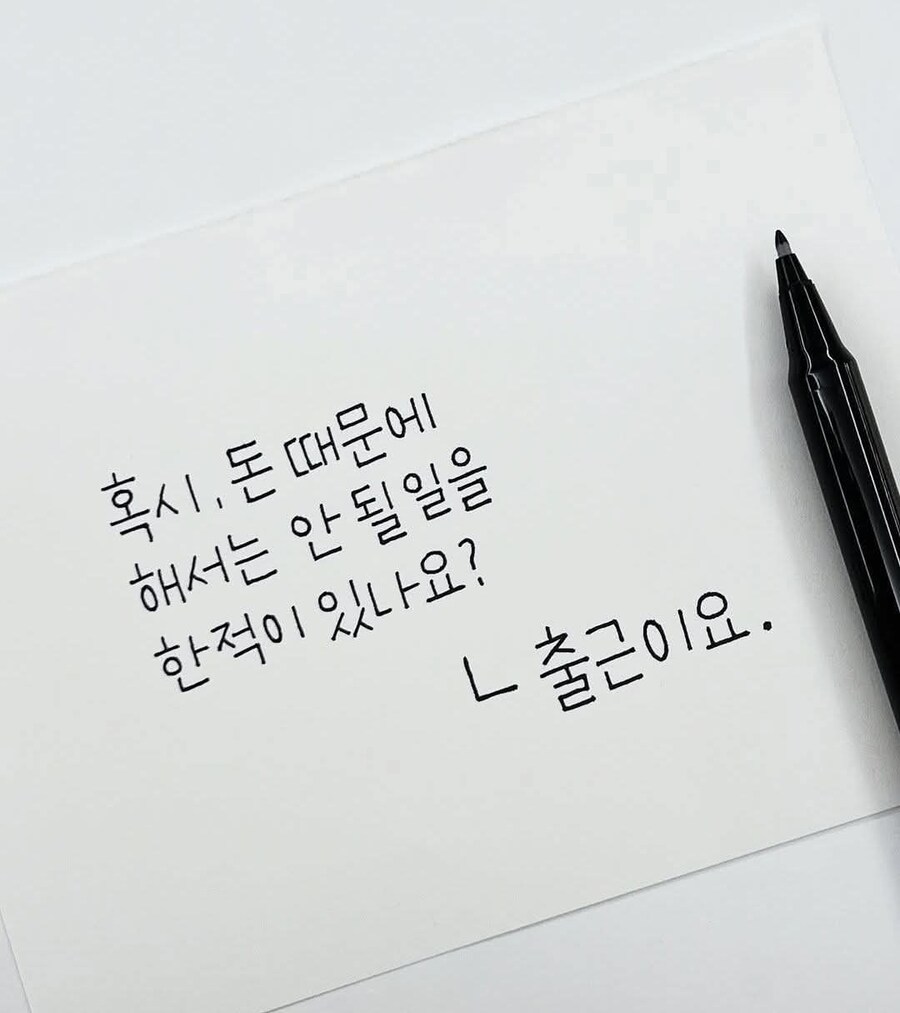 혹시, 돈 때문에
해서는 안 될 일을
한 적이 있나요?
ㄴ 출근이요.